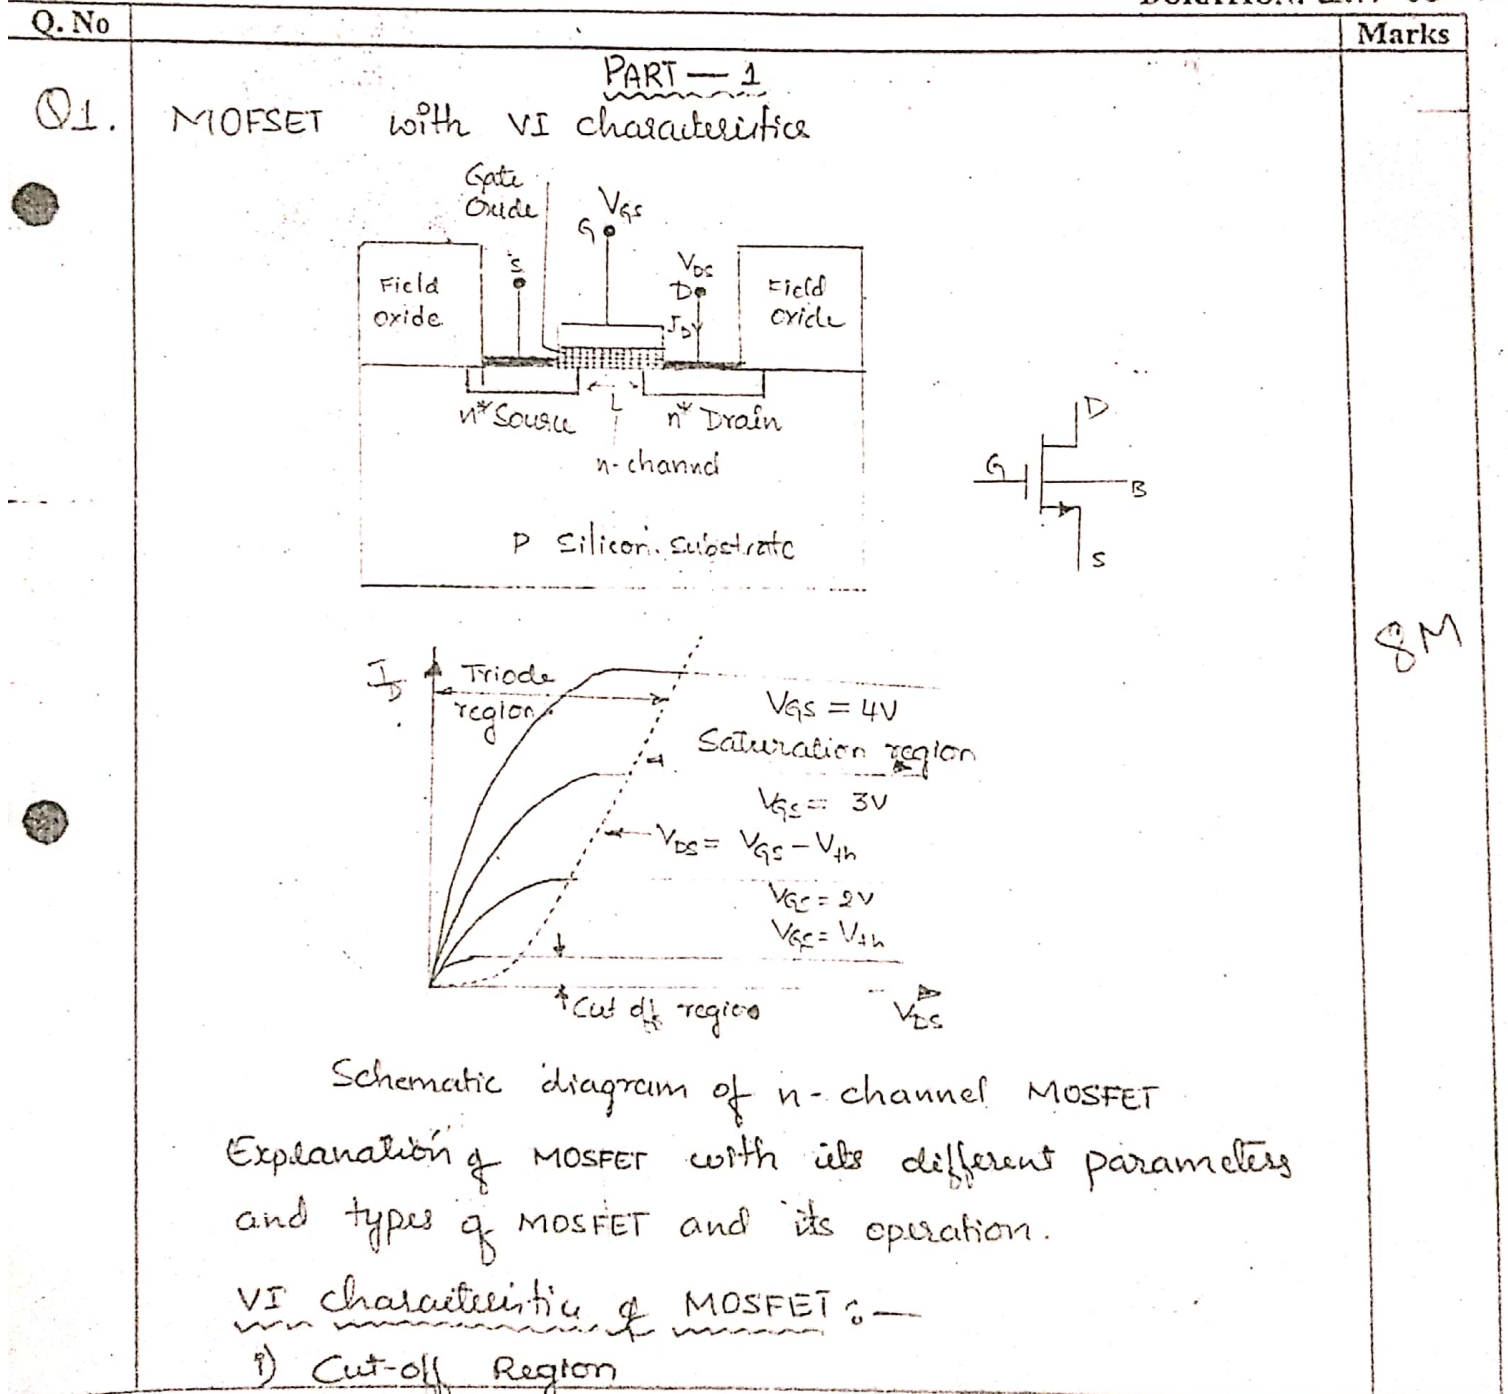 Q. No
Marks
PART — 1
Q1. MOFSET with VI characteristics
Gate
Oxide
VGS
G
S
VDS
D
Field
oxide
Field
oxide
ID
n+ Source
L
n+ Drain
n-channel
P Silicon Substrate
D
G
B
S
8M
ID
Triode
region
VGS = 4V
Saturation region
VGS = 3V
VDS = VGS - Vth
VGS = 2V
VGS = Vth
Cut off region
VDS
Schematic diagram of n-channel MOSFET
Explanation of MOSFET with its different parameters
and types of MOSFET and its operation.
VI characteristic of MOSFET :—
i) Cut-off Region